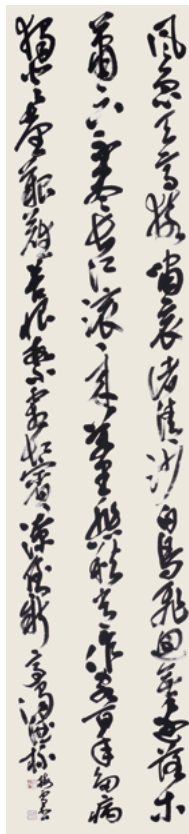 風急天高猿嘯哀渚清沙白鳥飛迴無邊落木
蕭〻下不盡長江滾〻來萬里悲秋常作客百年多病
獨登臺艱難苦恨繁霜鬢潦倒新停濁酒杯